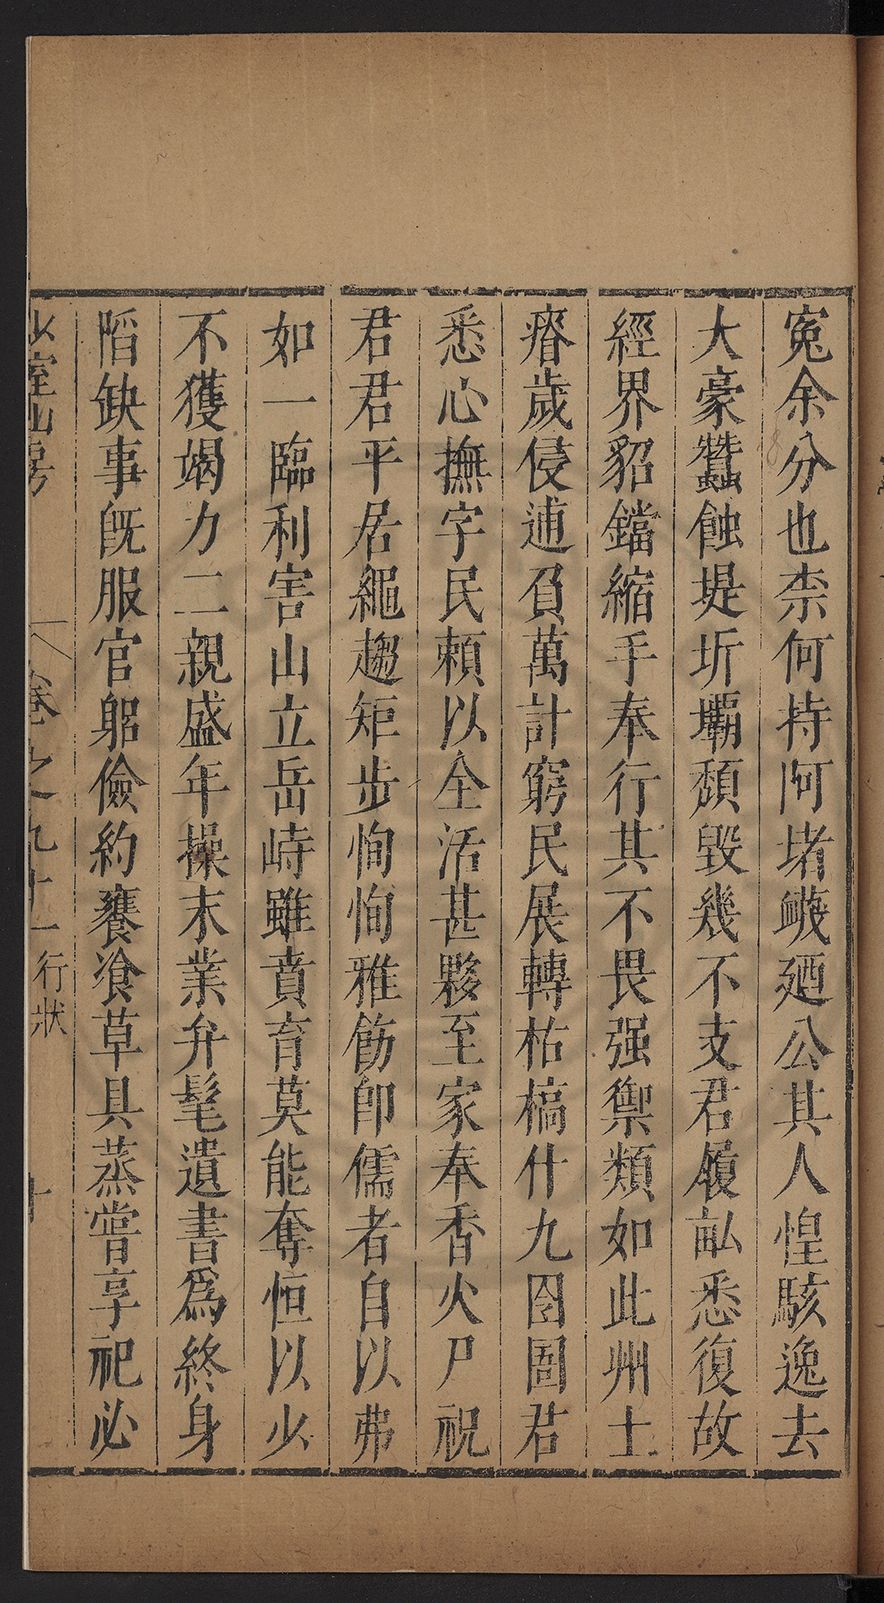 寃余分也柰何持阿堵衊廼公其人惶駭逸去
大豪蠶蝕堤圻壩頽毀幾不支君履畝悉復故
經界貂鐺縮手奉行其不畏强禦類如此州土
瘠歲侵逋負萬計窮民展轉枯槁什九囹圄君
悉心撫字民頼以全活甚夥至家奉香火尸祝
君君平居繩趨矩步恂恂雅飭卽儒者自以弗
如一臨利害山立岳峙雖賁育莫能奪恒以少
不獲竭力二親盛年操末業弁髦遺書爲終身
䧟缺事既服官躬儉約饔飡草具蒸嘗享祀必
少室山房 卷之九十一 行狀 十